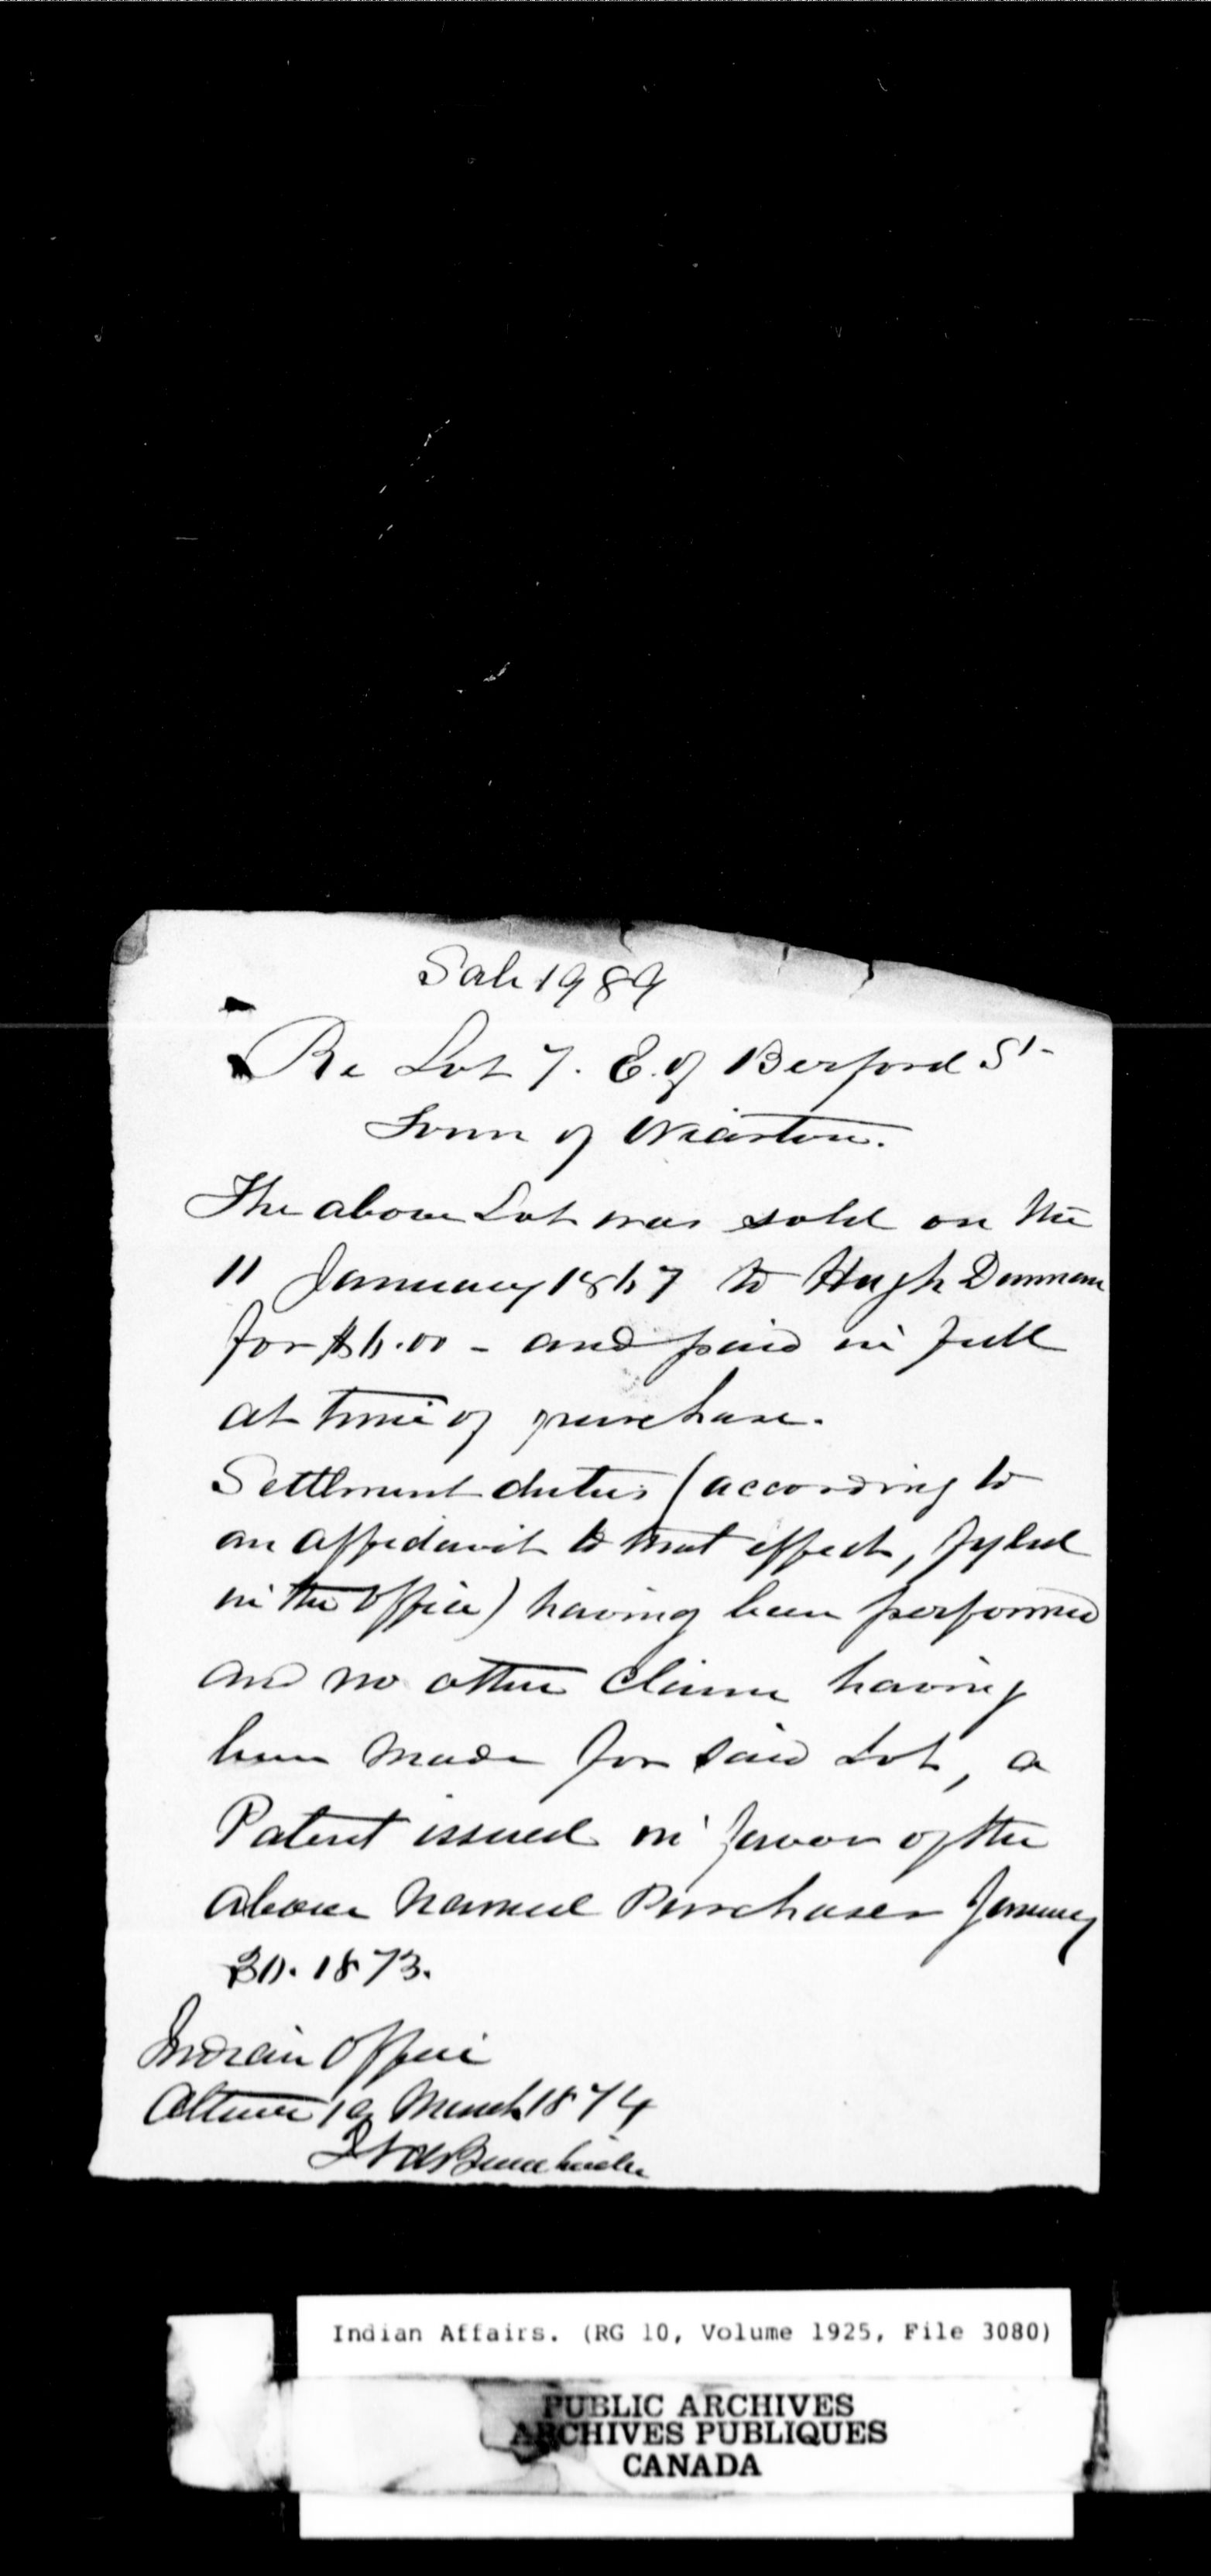 Sale 1989
Re Lot 7. E. of Berford St-
Town of Wiarton.
The above Lot was sold on the
11 January 1867 to Hugh
for $6.00 - and paid in full
at time of purchase.
Settlement duties (according to
an affidavit to that effect, fyled
in the office) having been performed
and no other claim having
been made for said Lot, a
Patent issued in favor of the
above named Purchaser January
30. 1873.
Indian Office
Ottawa 19 March 1874
Indian Affairs. (RG 10, Volume 1925, File 3080)
PUBLIC ARCHIVES
ARCHIVES PUBLIQUES
CANADA